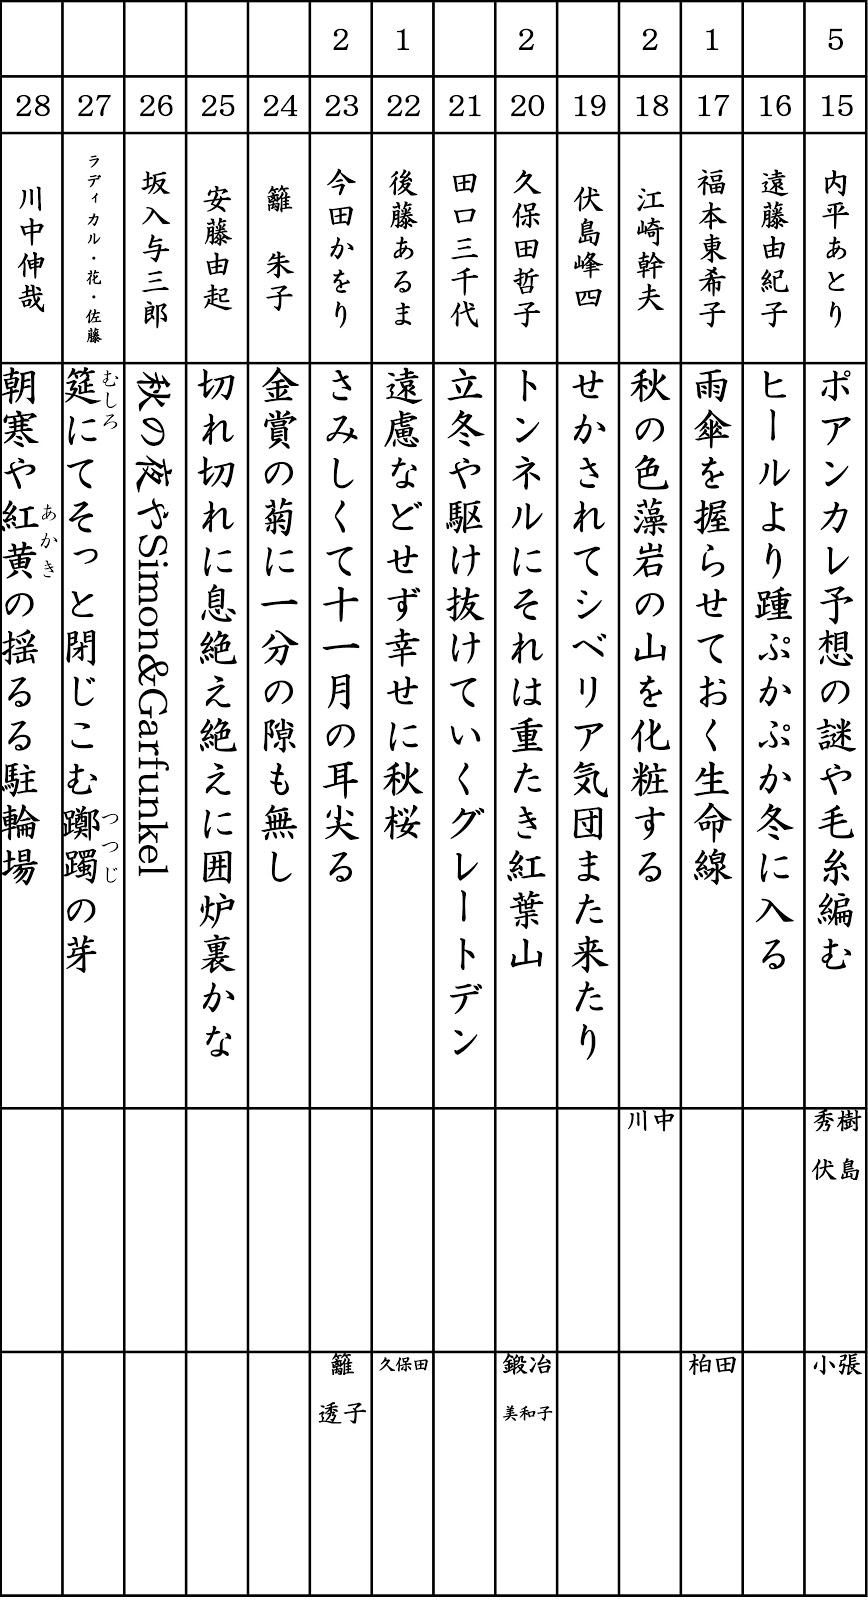 5
15
内平あとり
ポアンカレ予想の謎や毛糸編む
秀樹
伏島
小張
16
遠藤由紀子
ヒールより踵ぷかぷか冬に入る
1
17
福本東希子
雨傘を握らせておく生命線
柏田
2
18
江崎幹夫
秋の色藻岩の山を化粧する
川中
19
伏島峰四
せかされてシベリア気団また来たり
2
20
久保田哲子
トンネルにそれは重たき紅葉山
鍛冶
美和子
21
田口三千代
立冬や駆け抜けていくグレートデン
1
22
後藤あるま
遠慮などせず幸せに秋桜
久保田
2
23
今田かをり
さみしくて十一月の耳尖る
籬
透子
24
籬 朱子
金賞の菊に一分の隙も無し
25
安藤由起
切れ切れに息絶え絶えに囲炉裏かな
26
坂入与三郎
秋の夜やSimon&Garfunkel
27
ラディカル・花・佐藤
筵にてそっと閉じこむ躑躅の芽
むしろ
つつじ
28
川中伸哉
朝寒や紅黄の揺るる駐輪場
あかき